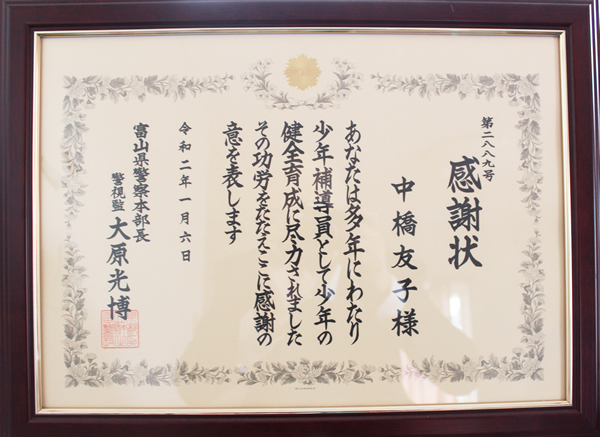 第二八八九号
感謝状
中橋友子様
あなたは多年にわたり
少年補導員として少年の
健全育成に尽力されました
その功労をたたえここに感謝の
意を表します
令和二年一月六日
富山県警察本部長
警視監 大原光博